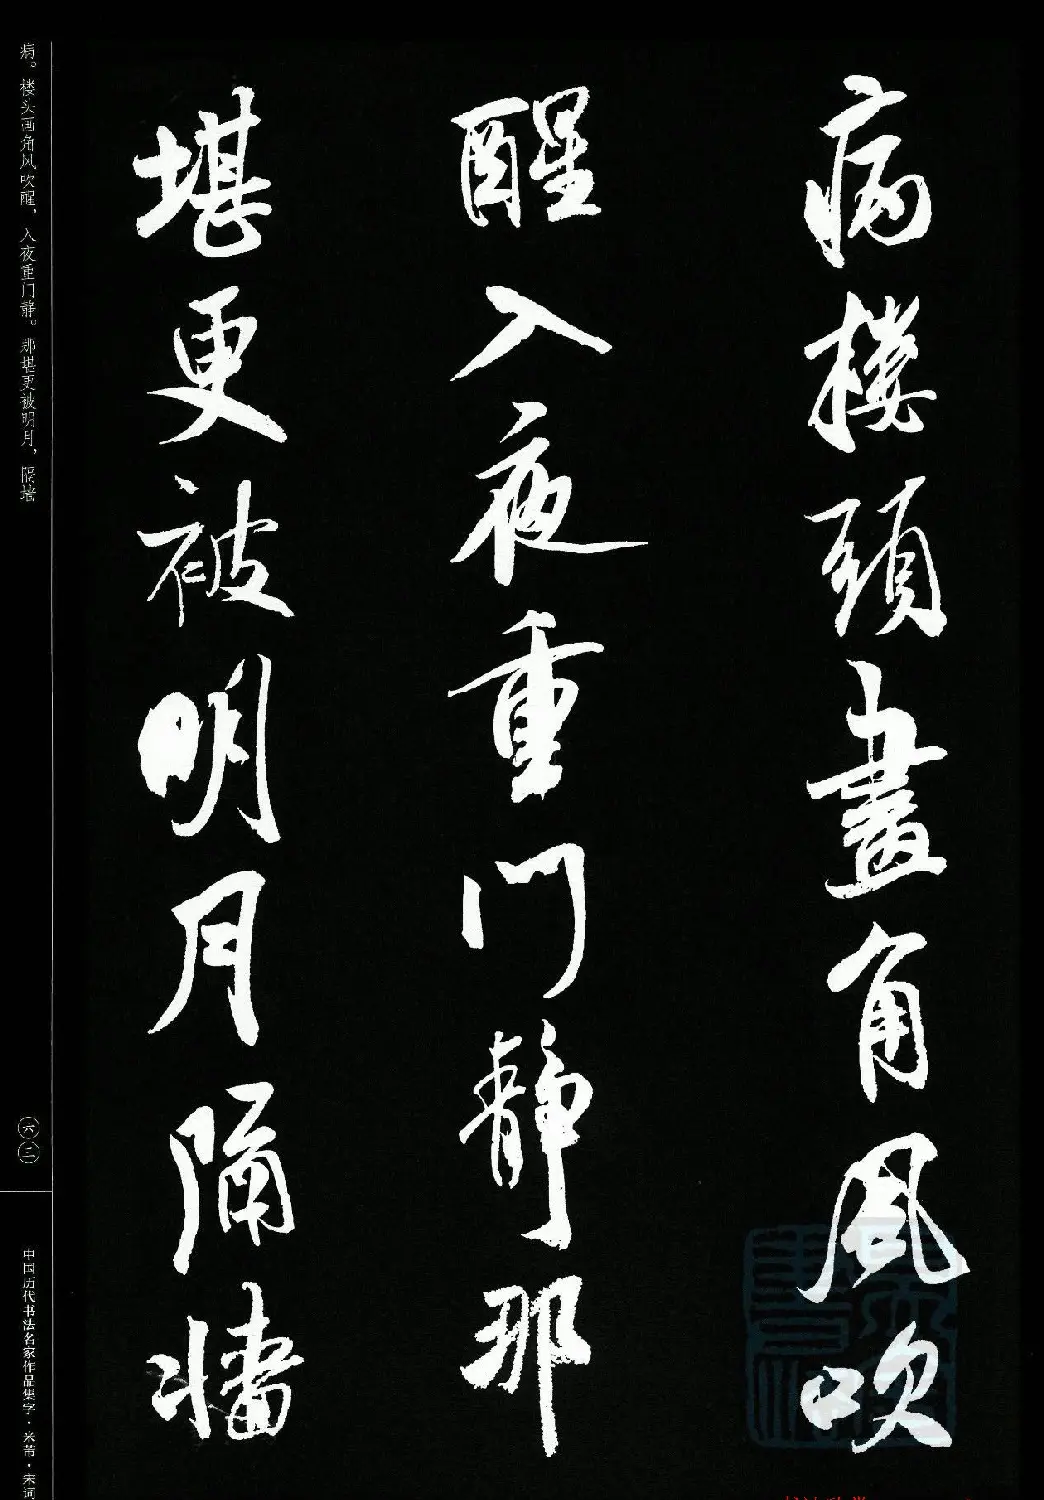 病樓頭畫角風吹
醒入夜重門靜那
堪更被明月隔牆
病。楼头画角风吹醒，入夜重门静。那堪更被明月，隔墙
六三
中国历代书法名家作品集字·米芾·宋词